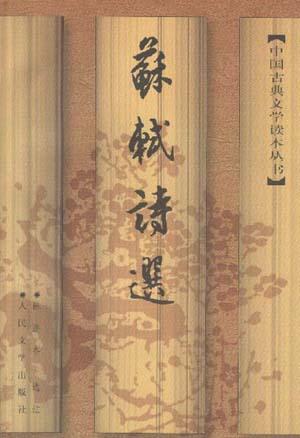 【中国古典文学读本丛书】
蘇軾詩選
选注
人民文学出版社